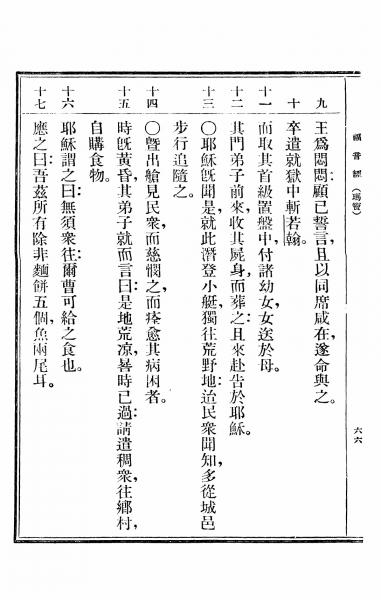 福音經(瑪竇) 六六
九 王爲悶悶;顧已誓言,且以同席咸在,遂命與之。
十 卒遣就獄中斬若翰。
十一 而取其首級置盤中,付諸幼女,女送於母。
十二 其門弟子前來,收其屍身,而葬之;且來赴告於耶穌。
十三 〇耶穌旣聞是,就此潛登小艇,獨往荒野地;迨民衆聞知,多從城邑
步行追隨之。
十四 〇曁出艙見民衆,而慈憫之,而痊愈其病困者。
十五 時旣黃昏,其弟子就而言曰:是地荒凉,晷時已過;請遣稠衆,往鄉村,
自購食物。
十六 耶穌謂之曰:無須衆往;爾曹可給之食也。
十七 應之曰:吾茲所有除非麵餅五個,魚兩尾耳。